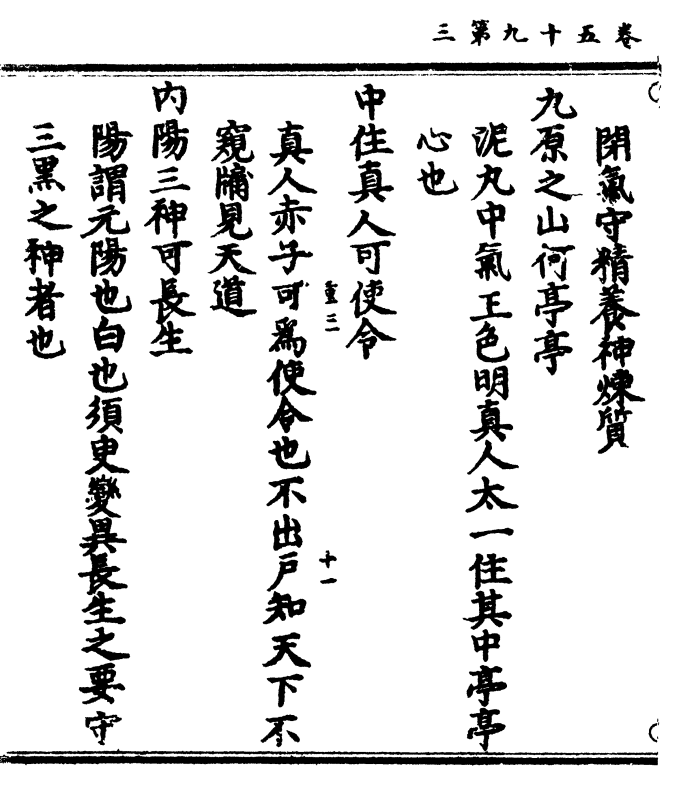 卷五十九第三
閉氣守精養神煉質
九原之山何亭亭
泥丸中氣王色明真人太一住其中亭亭
心也
中住真人可使令
重三
十一
真人赤子可爲使令也不出戶知天下不
窺牖見天道
內陽三神可長生
陽謂元陽也白也須臾變異長生之要守
三黑之神者也